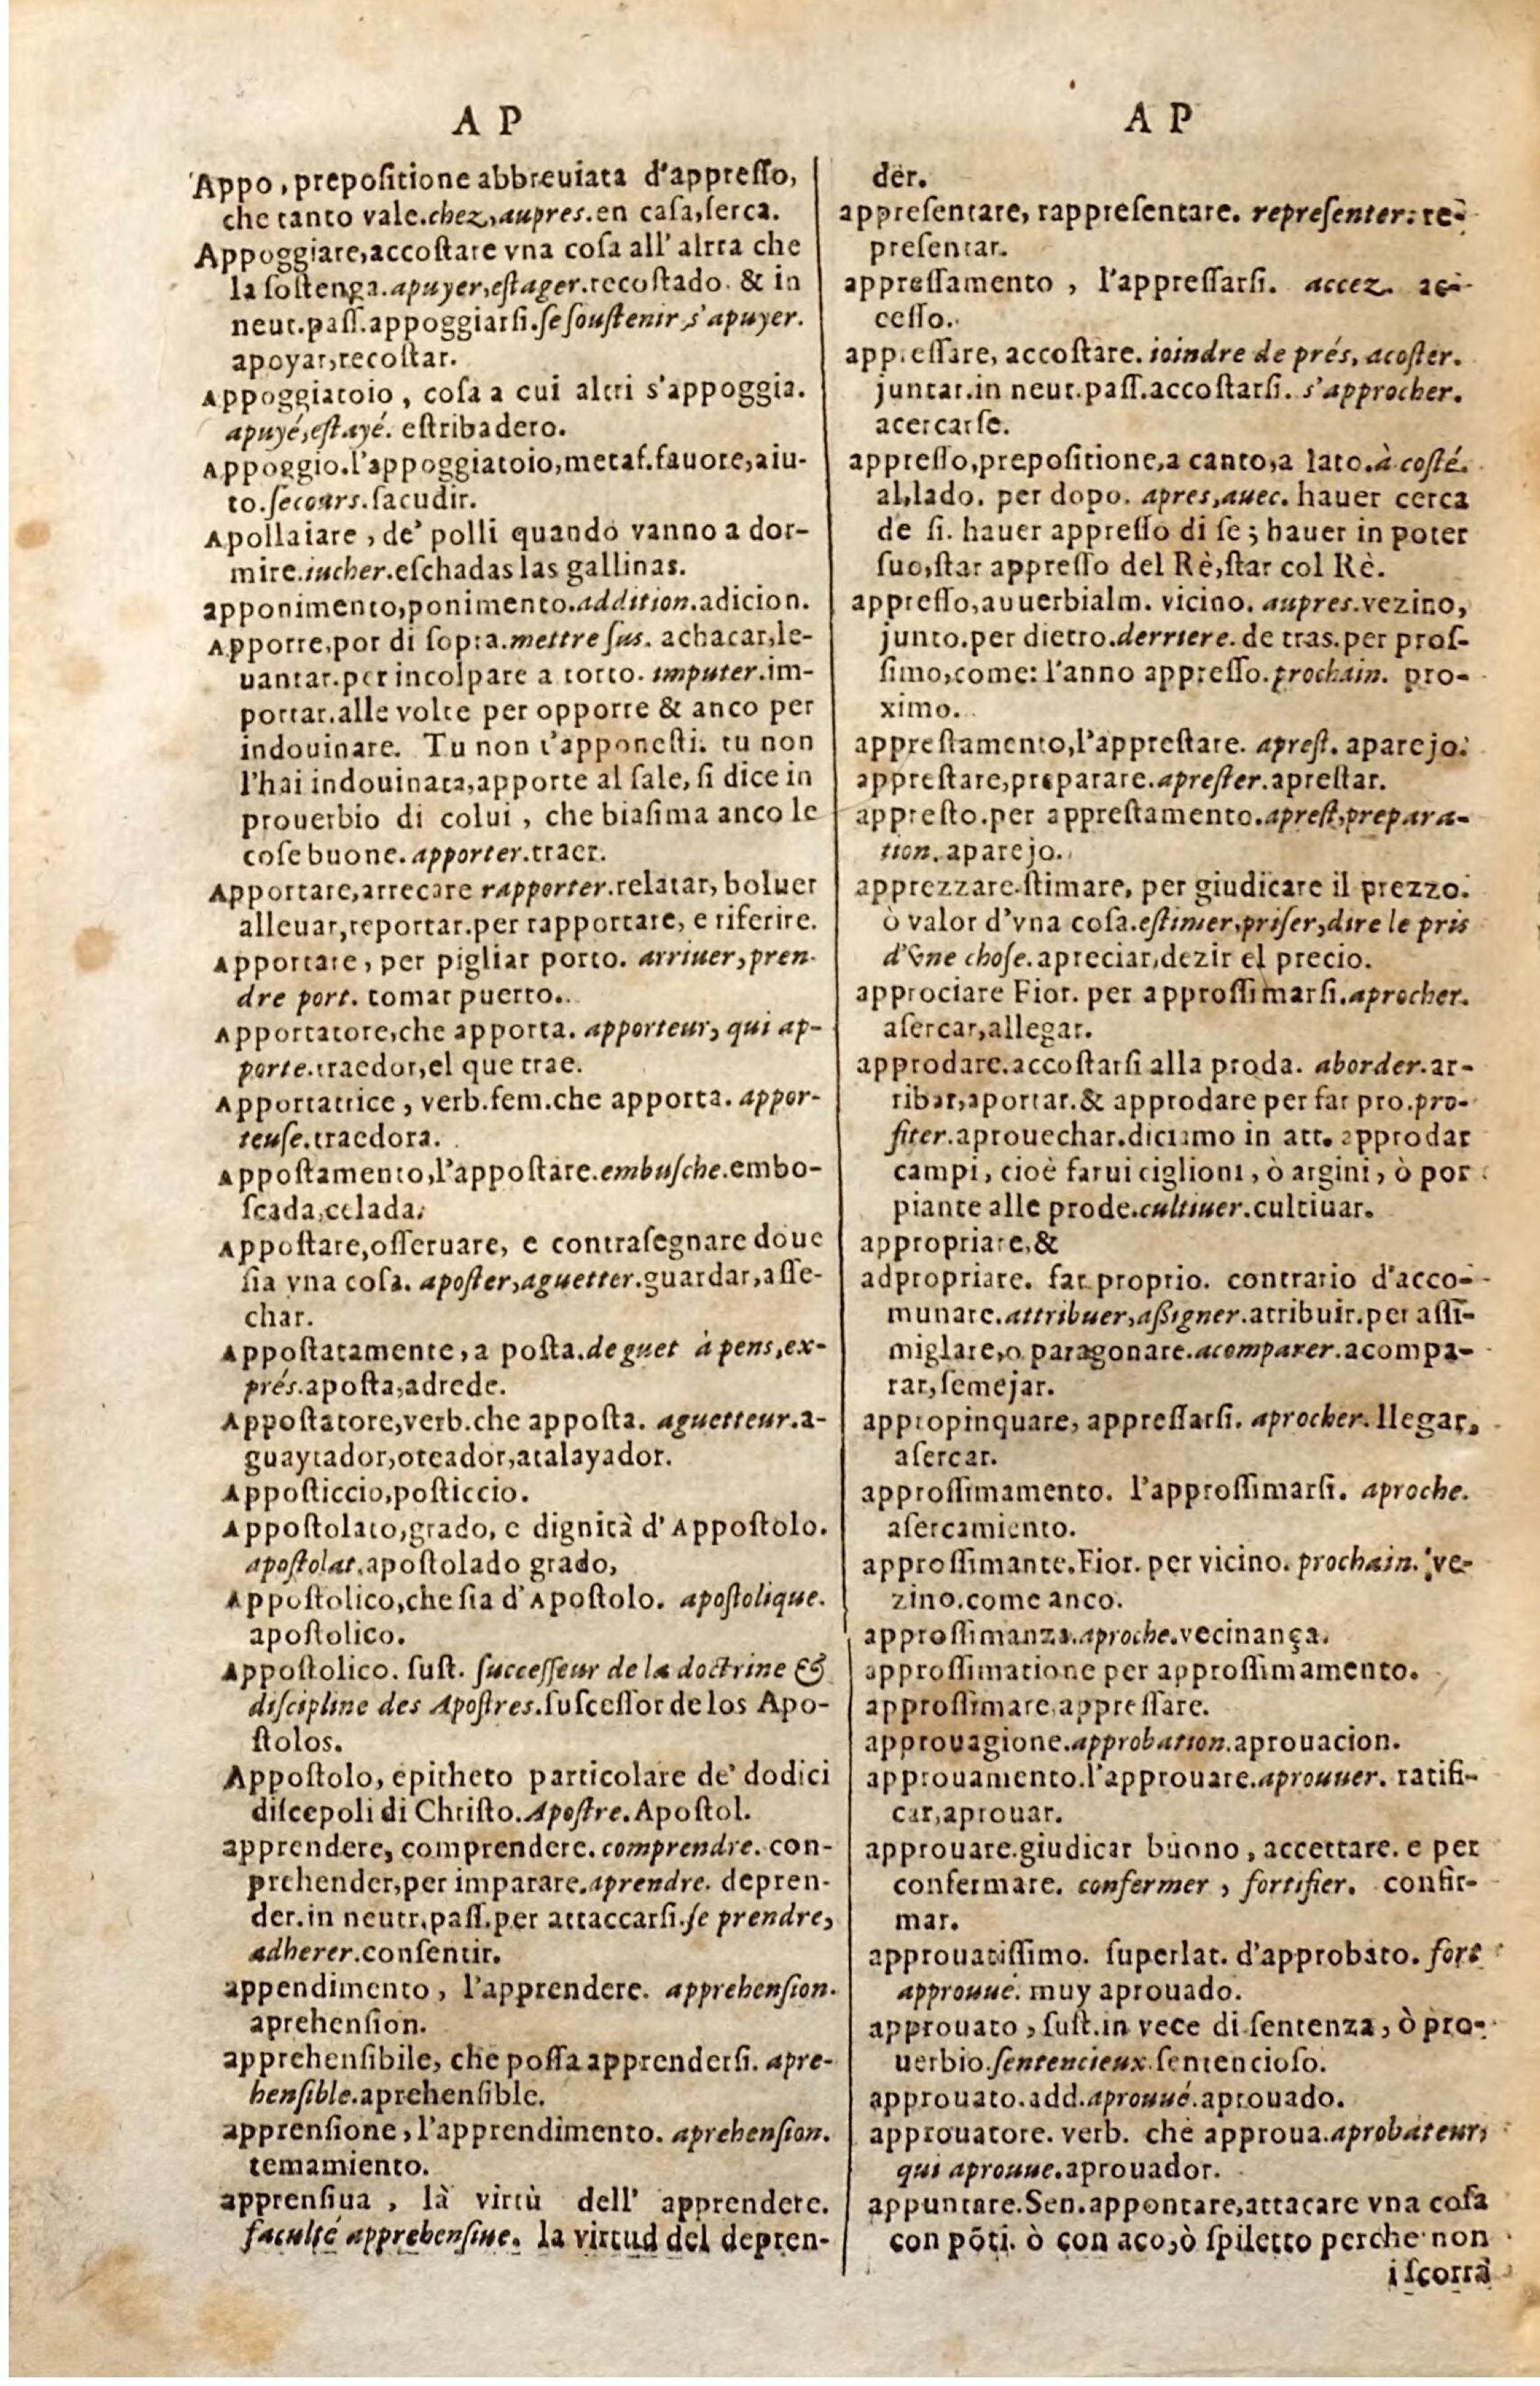 A P
Appo, prepositione abbreuiata d'appreſſo,
che tanto vale.chez,aupres.en caſa,ſerca.
Appoggiare,accoſtare vna coſa all'altra che
la ſoſtenga.apuyer,eſtager.recoſtado. & in
neut.paſſ.appoggiarſi.ſe ſouſtenir,s'apuyer.
apoyar,recoſtar.
Appoggiatoio, coſa a cui altri s'appoggia.
apuyé,eſtayé. eſtribadero.
Appoggio.l'appoggiatoio,metaf.fauore,aiu-
to.ſecours.ſacudir.
Apollaiare, de' polli quando vanno a dor-
mire.iucher.eſchadas las gallinas.
apponimento,ponimento.addition.adicion.
Apporre,por di ſopra.mettre ſus. achacar,le-
uantar.per incolpare a torto. imputer.im-
portar.alle volte per opporre & anco per
indouinare. Tu non t'apponeſti. tu non
l'hai indouinata,apporte al ſale, ſi dice in
prouerbio di colui, che biaſima anco le
coſe buone.apporter.traer.
Apportare,arrecare rapporter.relatar, boluer
alleuar,reportar.per rapportare, e riferire.
Apportare, per pigliar porto. arriuer,pren-
dre port. tomar puerto.
Apportatore,che apporta. apporteur, qui ap-
porte.traedor,el que trae.
Apportatrice, verb.fem.che apporta. appor-
teuſe.traedora.
Appoſtamento,l'appoſtare.embuſche.embo-
ſcada,celada.
Appoſtare,oſſeruare, e contraſegnare doue
ſia vna coſa. apoſter,aguetter.guardar,aſſe-
char.
Appoſtatamente, a poſta.de guet à pens,ex-
prés.apoſta,adrede.
Appoſtatore,verb.che appoſta. aguetteur.a-
guaytador,oteador,atalayador.
Appoſticcio,poſticcio.
Appoſtolato,grado, e dignità d'Appoſtolo.
apoſtolat.apoſtolado grado,
Appoſtolico,che ſia d'Apoſtolo. apoſtolique.
apoſtolico.
Appoſtolico. ſuſt. ſucceſſeur de la doctrine &
diſcipline des Apoſtres.ſuſceſſor de los Apo-
ſtolos.
Appoſtolo, epitheto particolare de' dodici
diſcepoli di Chriſto.Apoſtre.Apoſtol.
apprendere, comprendere. comprendre. con-
prehender,per imparare.aprendre. depren-
der.in neutr.paſſ.per attaccarſi.ſe prendre,
adherer.conſentir.
appendimento, l'apprendere. apprehenſion.
aprehenſion.
apprehenſibile, che poſſa apprenderſi. apre-
henſible.aprehenſible.
apprenſione, l'apprendimento. aprehenſion.
temamiento.
apprenſiua, là virtù dell' apprendere.
faculté apprehenſiue. la virtud del depren-
A P
der.
appreſentare, rappreſentare. repreſenter. re-
preſentar.
appreſſamento, l'appreſſarſi. accez. ac-
ceſſo.
appreſſare, accoſtare. ioindre de prés, acoſter.
juntar.in neut.paſſ.accoſtarſi. s'approcher.
acercarſe.
appreſſo,prepoſitione,a canto,a lato.à coſté.
al,lado. per dopo. apres,auec. hauer cerca
de ſi. hauer appreſſo di ſe; hauer in poter
ſuo,ſtar appreſſo del Rè,ſtar col Rè.
appreſſo,auuerbialm. vicino. aupres.vezino,
junto.per dietro.derriere. de tras.per proſ-
ſimo,come: l'anno appreſſo.prochain. pro-
ximo.
appreſtamento,l'appreſtare. apreſt. aparejo.
appreſtare,preparare.apreſter.apreſtar.
appreſto.per appreſtamento.apreſt,prepara-
tion. aparejo.
apprezzare.ſtimare, per giudicare il prezzo.
ò valor d'vna coſa.eſtimer,priſer,dire le pris
d'vne choſe.apreciar,dezir el precio.
approciare Fior. per approſſimarſi.aprocher.
aſercar,allegar.
approdare.accoſtarſi alla proda. aborder.ar-
ribar,aportar.& approdare per far pro.pro-
fiter.aprouechar.diciamo in att. approdar
campi, cioè farui ciglioni, ò argini, ò por
piante alle prode.cultiuer.cultiuar.
appropriare,&
adpropriare. far proprio. contrario d'acco-
munare.attribuer,aſsigner.atribuir.per aſſi-
migliare,o paragonare.acomparer.acompa-
rar,ſemejar.
appropinquare, appreſſarſi. aprocher. llegar,
aſercar.
approſſimamento. l'approſſimarſi. aproche.
aſercamiento.
approſſimante.Fior. per vicino. prochain. ve-
zino.come anco.
approſſimanza.aproche.vecinança.
approſſimatione per approſſimamento.
approſſimare.appreſſare.
approuagione.approbation.aprouacion.
approuamento.l'approuare.aprouuer. ratifi-
car,aprouar.
approuare.giudicar buono, accettare. e per
confermare. confermer, fortifier. confir-
mar.
approuatiſſimo. ſuperlat. d'approbato. fort
approuué. muy aprouado.
approuato, ſuſt.in vece di ſentenza, ò pro-
uerbio.ſentencieux.ſentencioſo.
approuato.add.aprouué.aprouado.
approuatore. verb. che approua.aprobateur,
qui aprouue.aprouador.
appuntare.Sen.appontare,attacare vna coſa
con põti. ò con aco,ò ſpiletto perche non
i ſcorra